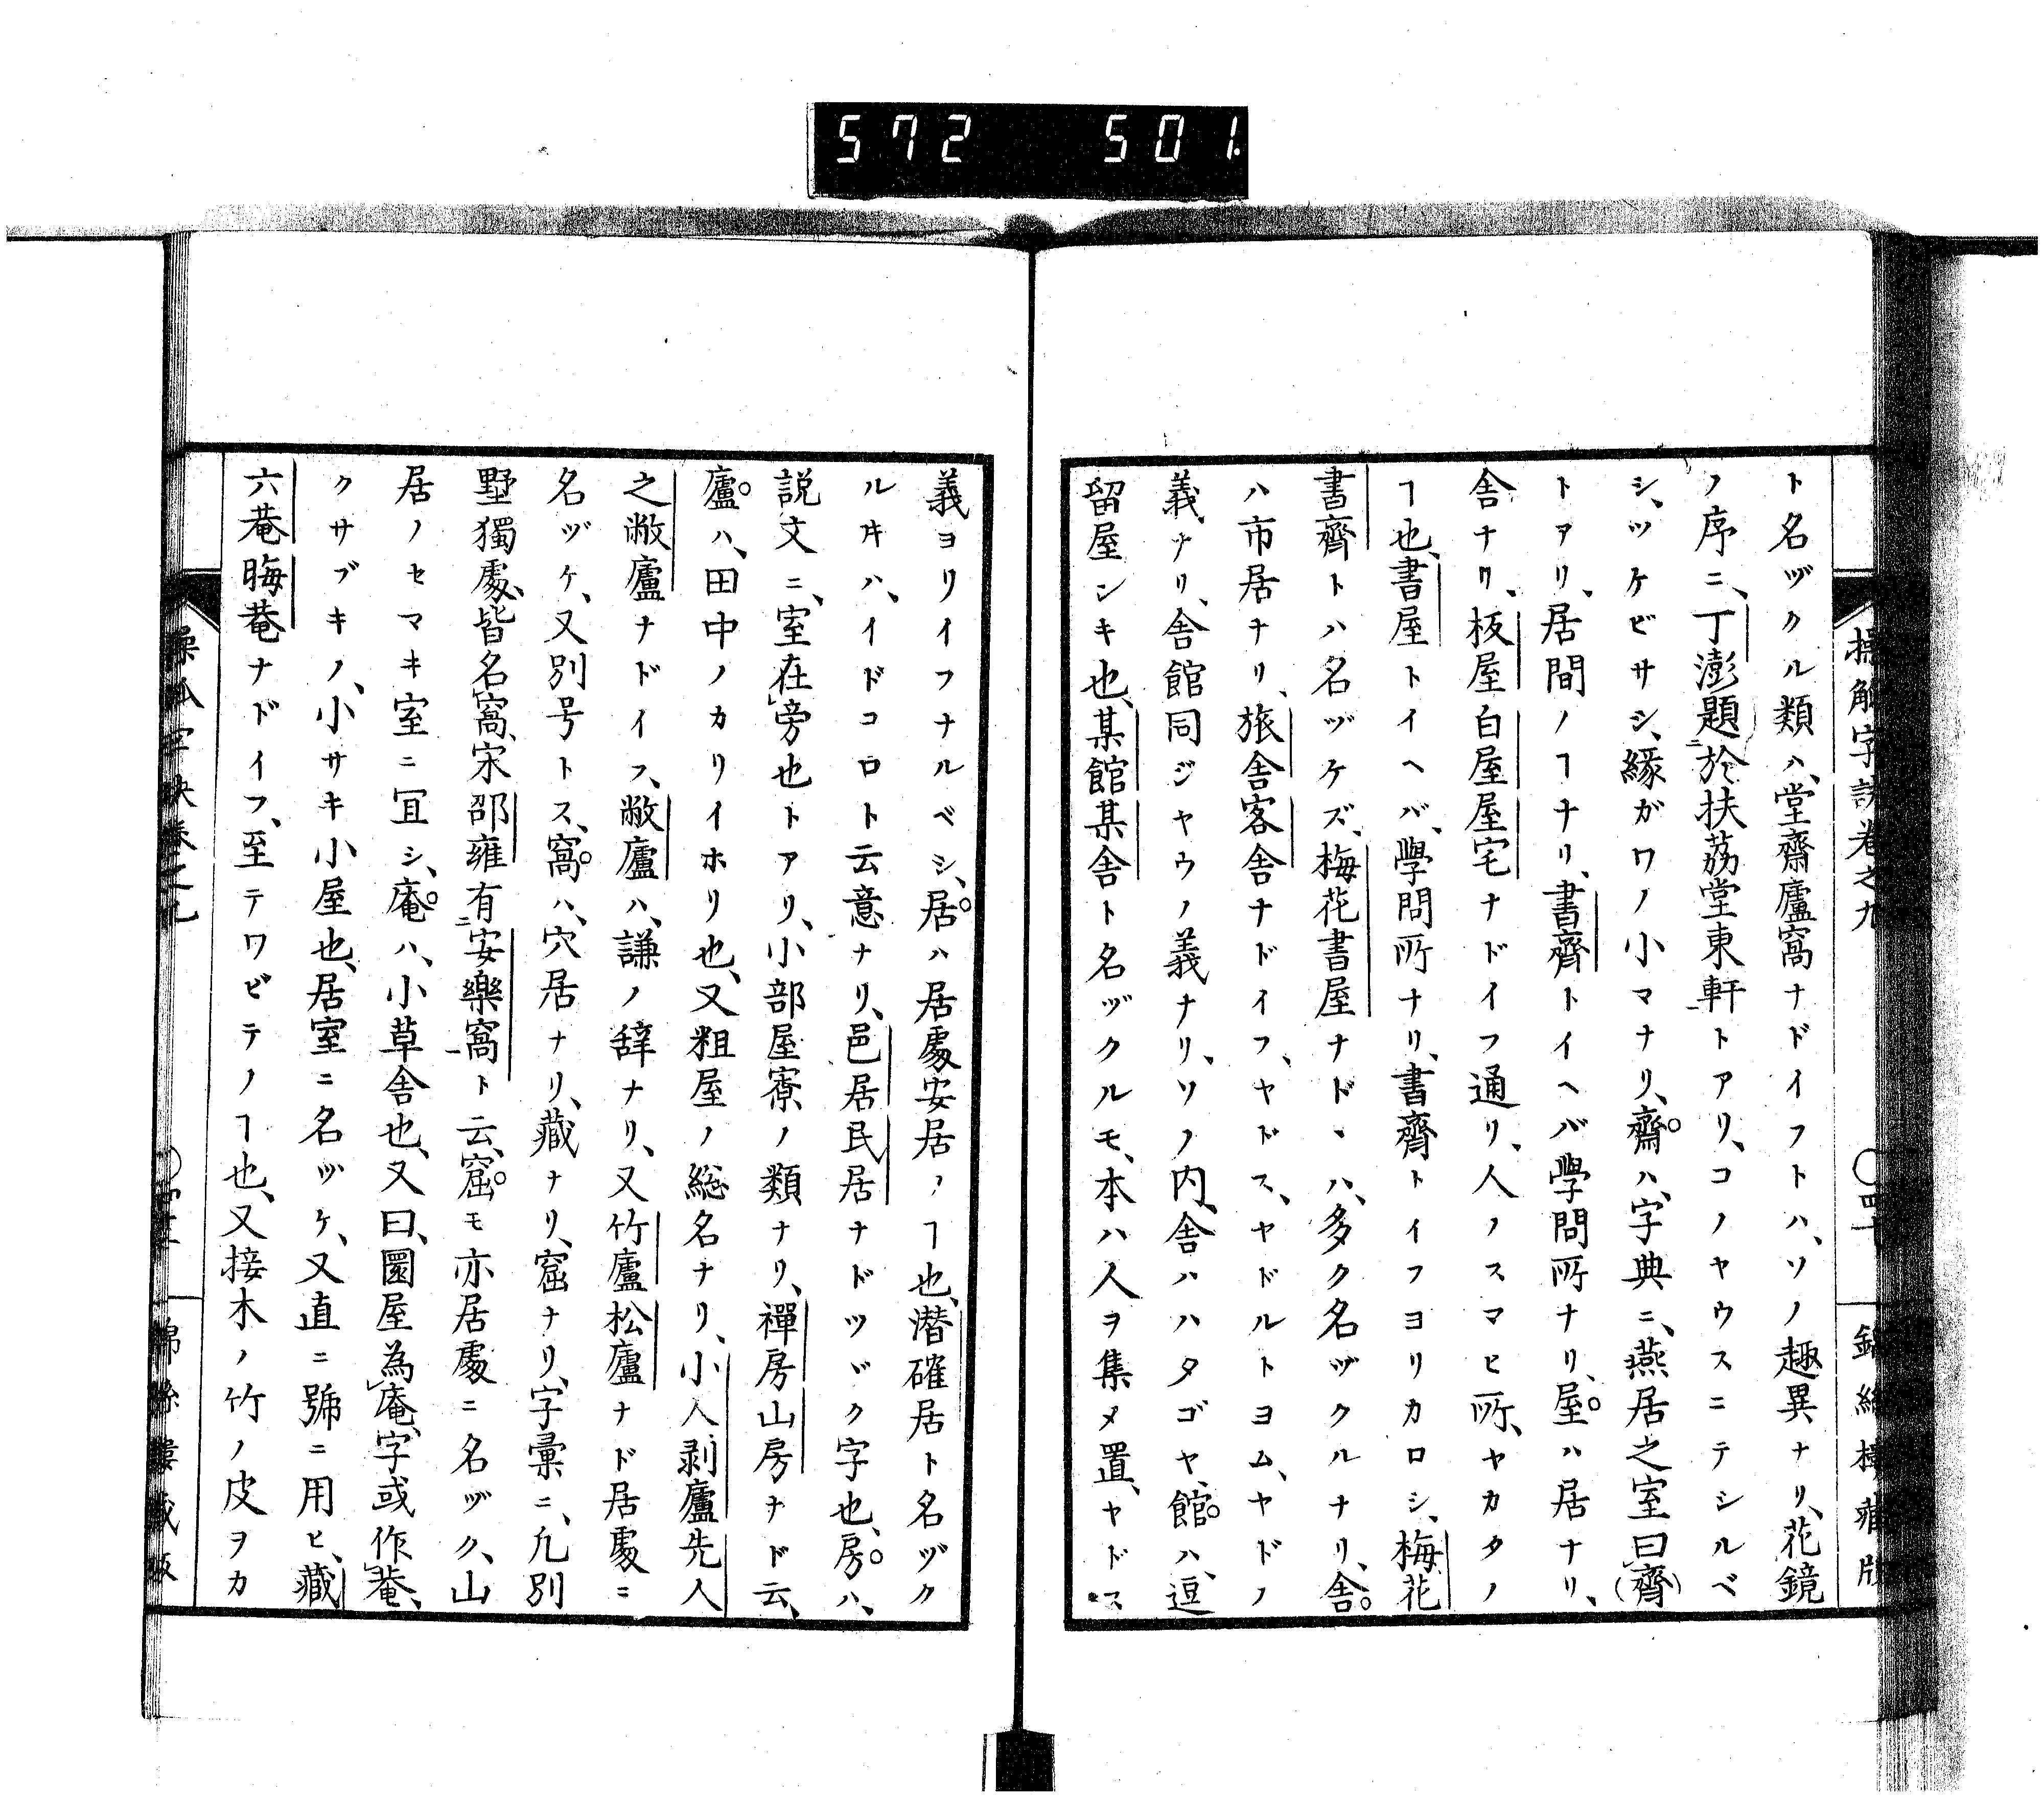 572 501
操觚字訣卷之九 ○四十 錦絲樓藏版
ト名ヅクル類ハ、堂齋廬窩ナドイフトハ、ソノ趣異ナリ、花鏡
ノ序ニ、丁澎題ニ於扶荔堂東軒一トアリ、コノヤウスニテシルベ
シ、ツケビサシ、縁ガワノ小マナリ、齋ハ、字典ニ、燕居之室曰齊
トアリ、居間ノヿナリ、書齊トイヘバ學問所ナリ、屋ハ居ナリ、
舎ナリ、板屋白屋屋宅ナドイフ通リ、人ノスマヒ所、ヤカタノ
ヿ也、書屋トイヘバ、學問所ナリ、書齊トイフヨリカロシ、梅花
書齊トハ名ヅケズ、梅花書屋ナドヽハ、多ク名ヅクルナリ、舎
ハ市居ナリ、旅舎客舎ナドイフ、ヤドス、ヤドルトヨム、ヤドノ
義ナリ、舎館同ジヤウノ義ナリ、ソノ内、舎ハハタゴヤ、館ハ、逗
留屋シキ也、某館某舎ト名ヅクルモ、本ハ人ヲ集メ置、ヤドス
義ヨリイフナルベシ、居ハ居處安居ノヿ也、潜確居ト名ヅク
ルヰハ、イドコロト云意ナリ、邑居民居ナドツヾク字也、房ハ、
説文ニ、室在旁也トアリ、小部屋寮ノ類ナリ、禪房山房ナド云、
廬ハ、田中ノカリイホリ也、又粗屋ノ総名ナリ、小人剥廬先人
之敝廬ナドイフ、敝廬ハ、謙ノ辞ナリ、又竹廬松廬ナド居處ニ
名ヅケ、又別号トス、窩ハ、穴居ナリ、藏ナリ、窟ナリ、字彙ニ、凢別
墅獨處、皆名窩、宋邵雍有ニ安樂窩一ト云、窟モ亦居處ニ名ヅク、山
居ノセマキ室ニ冝シ、庵ハ、小草舎也、又曰、圜屋為庵、字或作菴、
クサブキノ、小サキ小屋也、居室ニ名ヅケ、又直ニ號ニ用ヒ、藏
六菴晦菴ナドイフ、至テワビテノヿ也、又接木ノ竹ノ皮ヲカ
操觚字訣卷之九 錦絲樓藏版